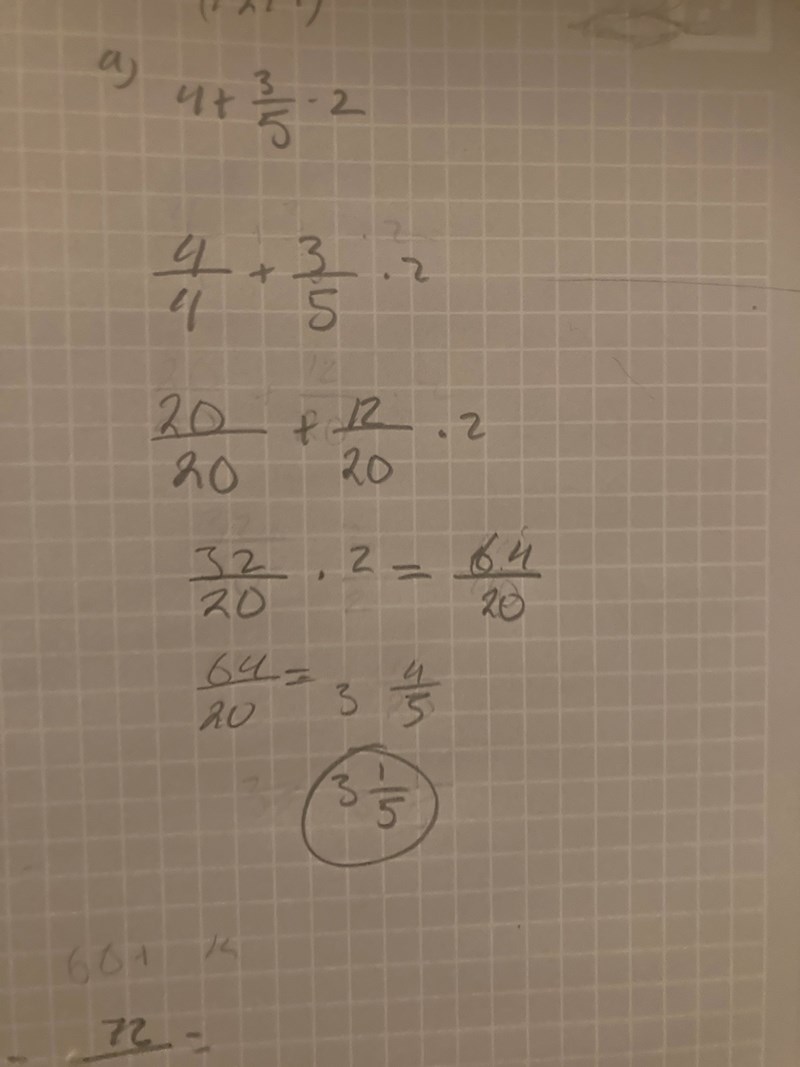 a)
4 + 3/5 · 2
4/4 + 3/5 · 2
20/20 + 12/20 · 2
32/20 · 2 = 64/20
64/20 = 3 4/5
3 1/5
60+
72 =